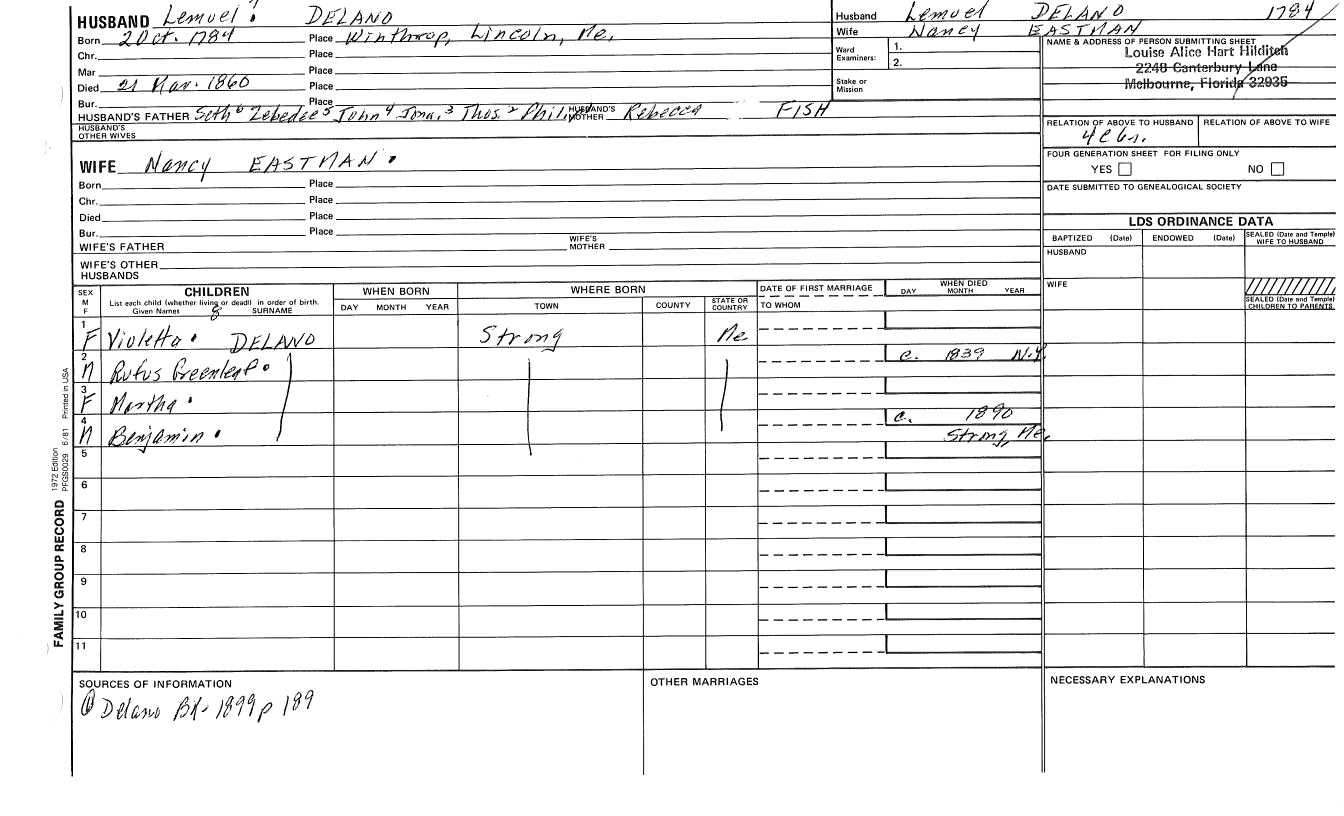 HUSBAND Lemuel 7 DELANO
Born 2 Oct. 1784 Place Winthrop, Lincoln, Me.
Chr. Place
Mar Place
Died 21 Mar. 1860 Place
Bur. Place
HUSBAND'S FATHER Seth 6 Zebedee 5 John 4 Jona. 3 Thos. 2 Phil. HUSBAND'S MOTHER Rebecca FISH
HUSBAND'S OTHER WIVES
WIFE Nancy EASTMAN
Born Place
Chr. Place
Died Place
Bur. Place
WIFE'S FATHER WIFE'S MOTHER
WIFE'S OTHER HUSBANDS
Husband Lemuel DELANO 1784
Wife Nancy EASTMAN
Ward Examiners: 1.
2.
Stake or Mission
NAME & ADDRESS OF PERSON SUBMITTING SHEET
Louise Alice Hart Hilditch
2248 Canterbury Lane
Melbourne, Florida 32935
RELATION OF ABOVE TO HUSBAND RELATION OF ABOVE TO WIFE
FOUR GENERATION SHEET FOR FILING ONLY
YES NO
DATE SUBMITTED TO GENEALOGICAL SOCIETY
LDS ORDINANCE DATA
BAPTIZED (Date) ENDOWED (Date) SEALED (Date and Temple) WIFE TO HUSBAND
HUSBAND
WIFE
SEALED (Date and Temple) CHILDREN TO PARENTS
SEX M F CHILDREN WHEN BORN WHERE BORN DATE OF FIRST MARRIAGE WHEN DIED
List each child (whether living or dead) in order of birth.
Given Names 8 SURNAME DAY MONTH YEAR TOWN COUNTY STATE OR COUNTRY TO WHOM DAY MONTH YEAR
1 F Violetta DELANO Strong Me
2 M Rufus Greenleaf c. 1839 N.Y.
3 F Martha
4 M Benjamin c. 1890
Strong, Me.
5
6
7
8
9
10
11
SOURCES OF INFORMATION OTHER MARRIAGES NECESSARY EXPLANATIONS
1 Delano BK- 1899 p 189
FAMILY GROUP RECORD
1972 Edition
PFGS0029 6/81 Printed in USA